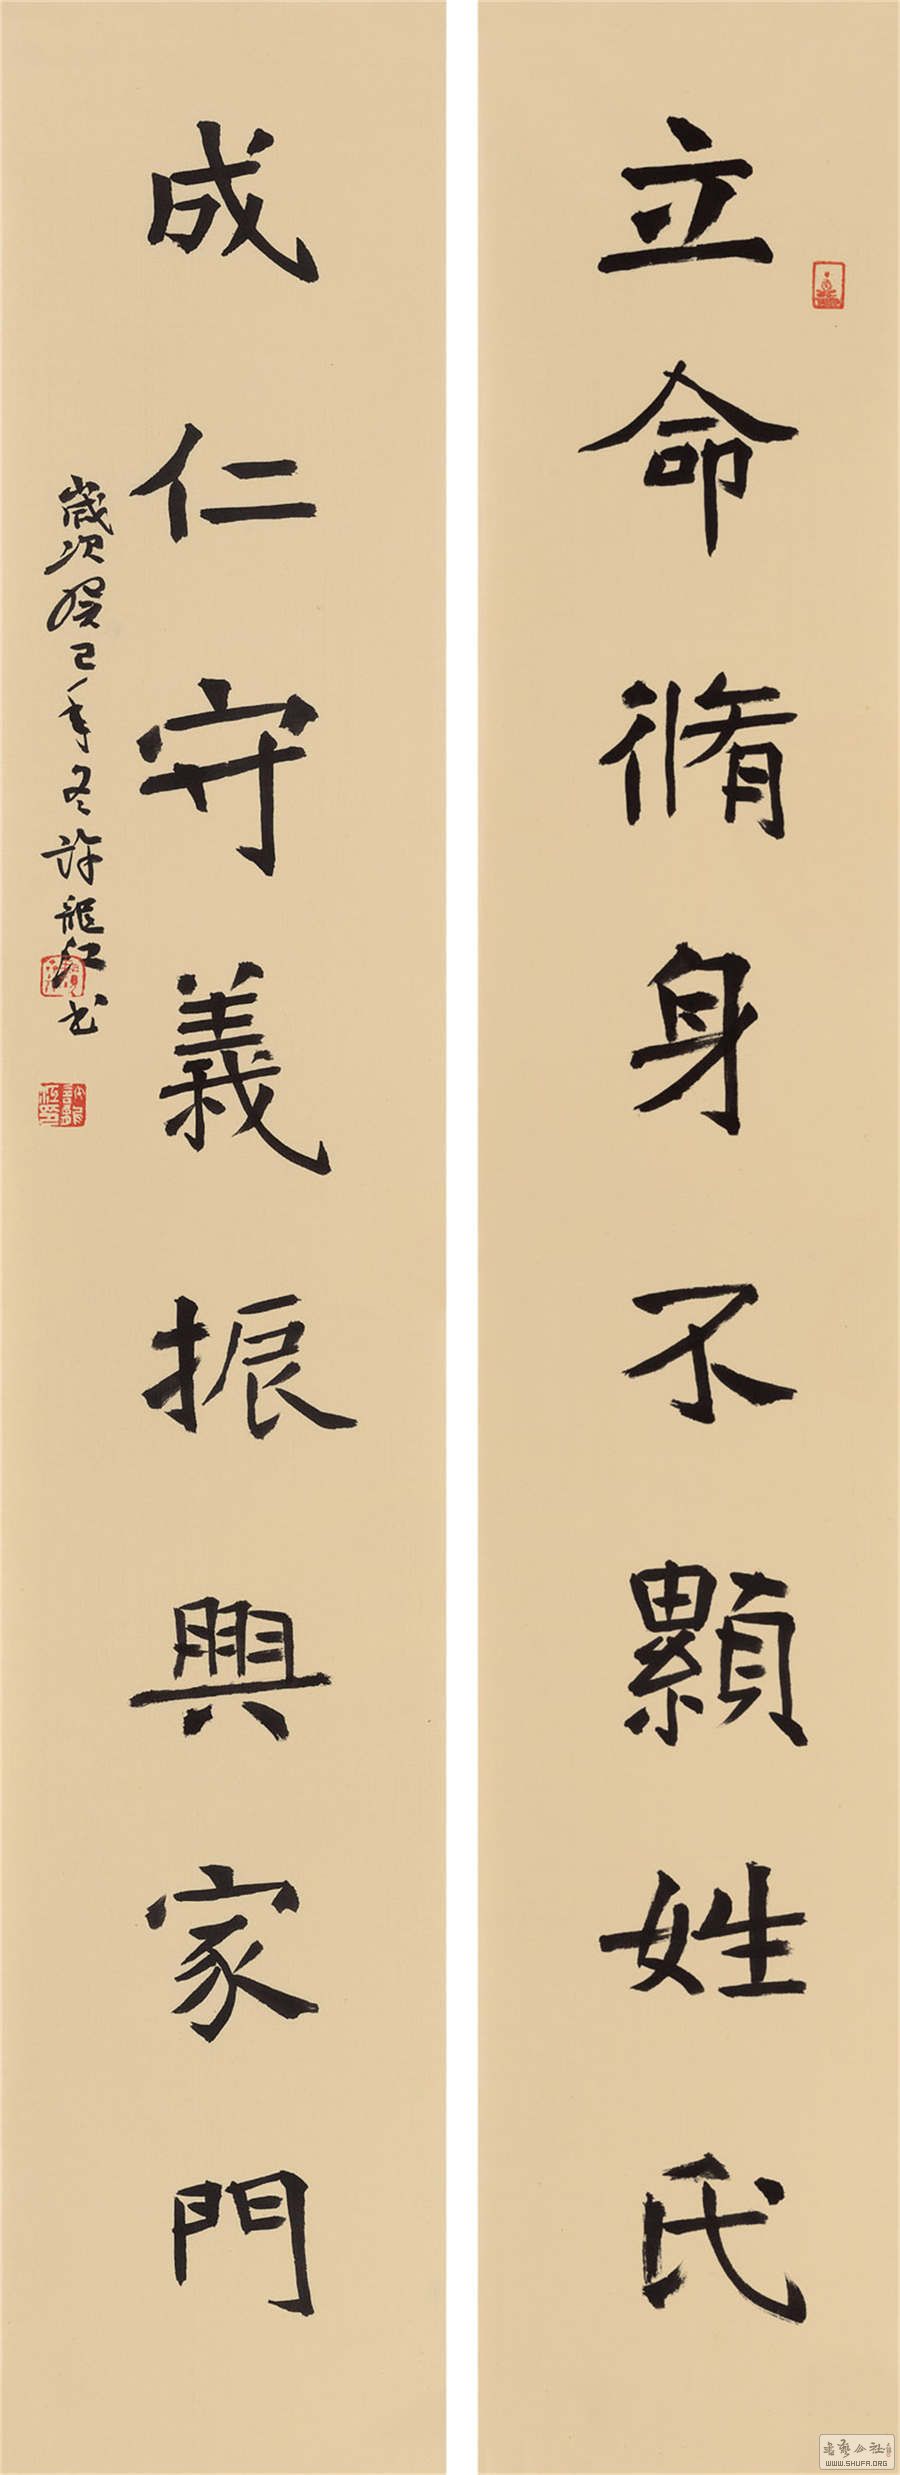 立命脩身不顯姓氏
成仁守義振興家門
歲次癸巳年冬許龍江书
書藝公社
WWW.SHUFA.ORG